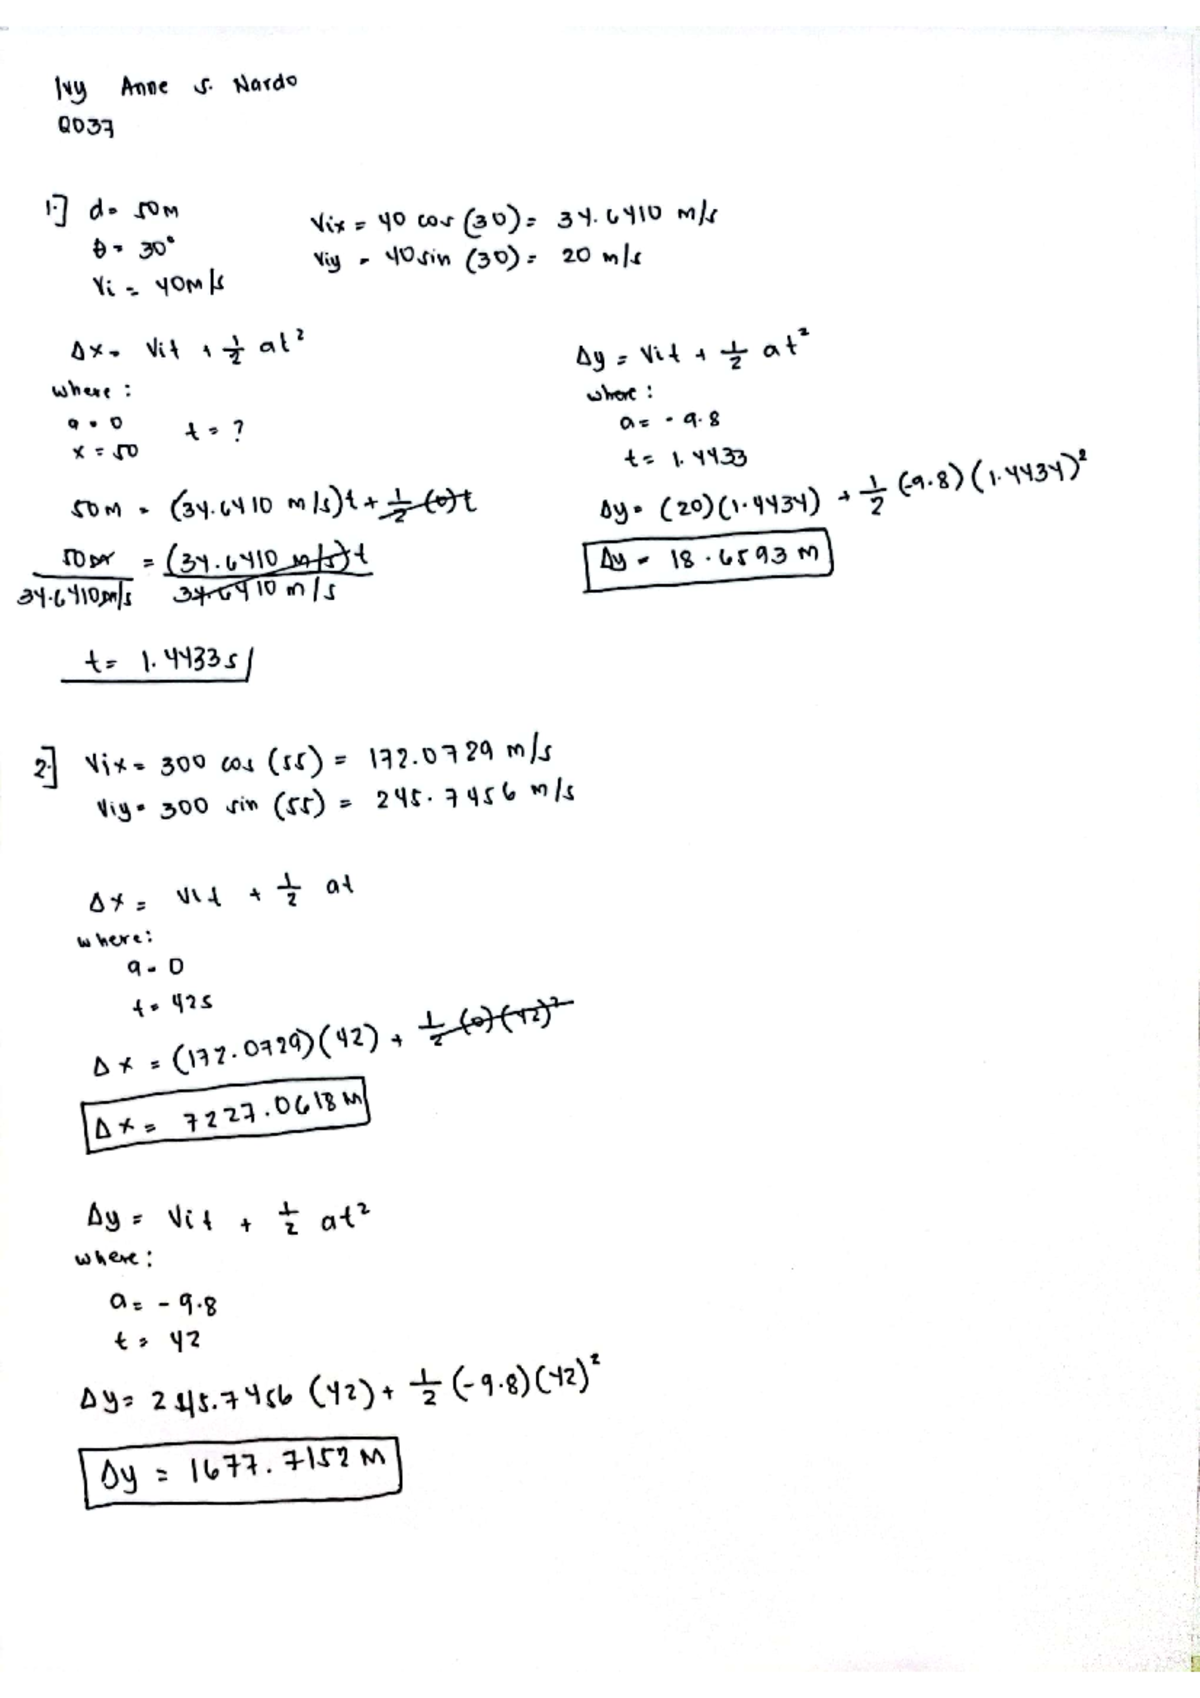 Ivy Anne S. Nardo
QD37
1.] d = 50m
θ = 30°
Vi = 40m/s
Vix = 40 cos (30) = 34.6410 m/s
Viy = 40 sin (30) = 20 m/s
Δx = Vit + 1/2 at²
where :
a = 0
x = 50
t = ?
50m = (34.6410 m/s)t + 1/2 (0)t
50m / 34.6410m/s = (34.6410 m/s)t / 34.6410 m/s
t = 1.4433 s
Δy = Vit + 1/2 at²
where :
a = - 9.8
t = 1.4433
Δy = (20)(1.4434) + 1/2 (-9.8)(1.4434)²
Δy = 18.6593 m
2.] Vix = 300 cos (55) = 172.0729 m/s
Viy = 300 sin (55) = 245.7456 m/s
Δx = Vit + 1/2 at
where:
a = 0
t = 42s
Δx = (172.0729)(42) + 1/2 (0)(42)²
Δx = 7227.0618 m
Δy = Vit + 1/2 at²
where :
a = - 9.8
t = 42
Δy = 245.7456 (42) + 1/2 (-9.8)(42)²
Δy = 1677.7152 m